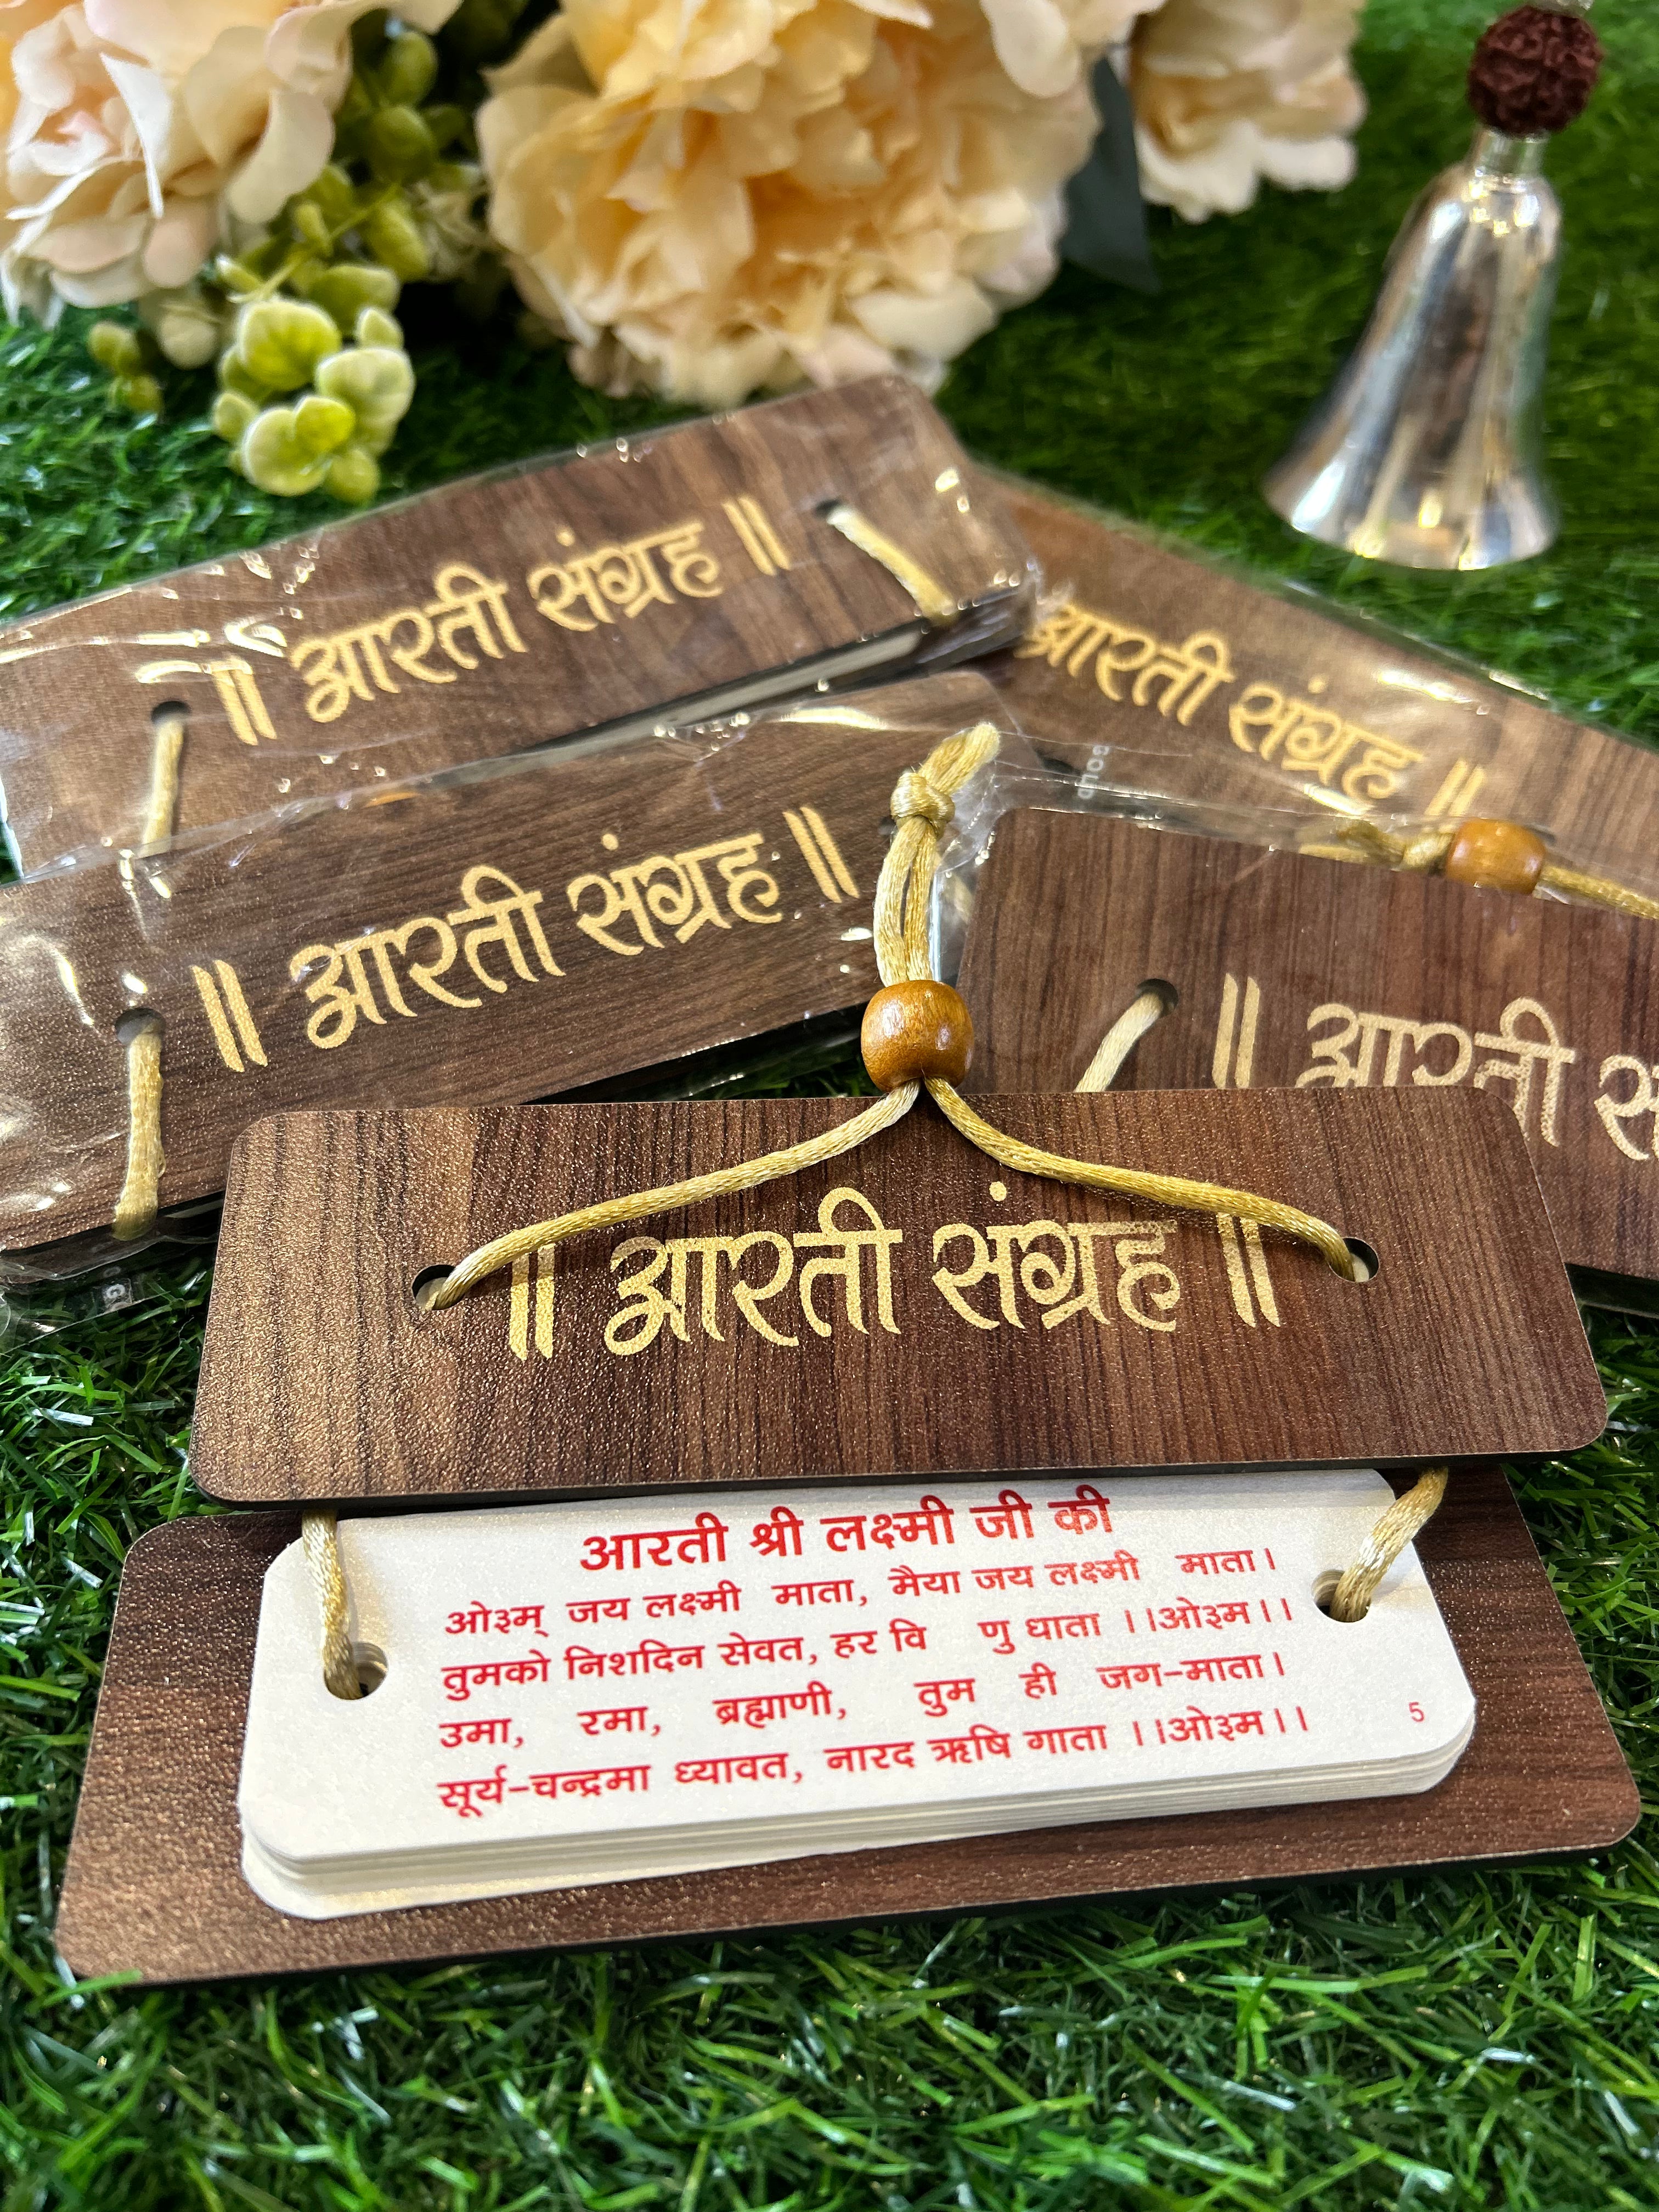 ॥ आरती संग्रह ॥
आरती संग्रह ॥
॥ आरती संग्रह ॥
॥ आरती
॥ आरती संग्रह ॥
आरती श्री लक्ष्मी जी की
ओ३म् जय लक्ष्मी माता, मैया जय लक्ष्मी माता।
तुमको निशदिन सेवत, हर वि णु धाता ।।ओ३म।।
उमा, रमा, ब्रह्माणी, तुम ही जग-माता।
सूर्य-चन्द्रमा ध्यावत, नारद ऋषि गाता ।।ओ३म।।
5